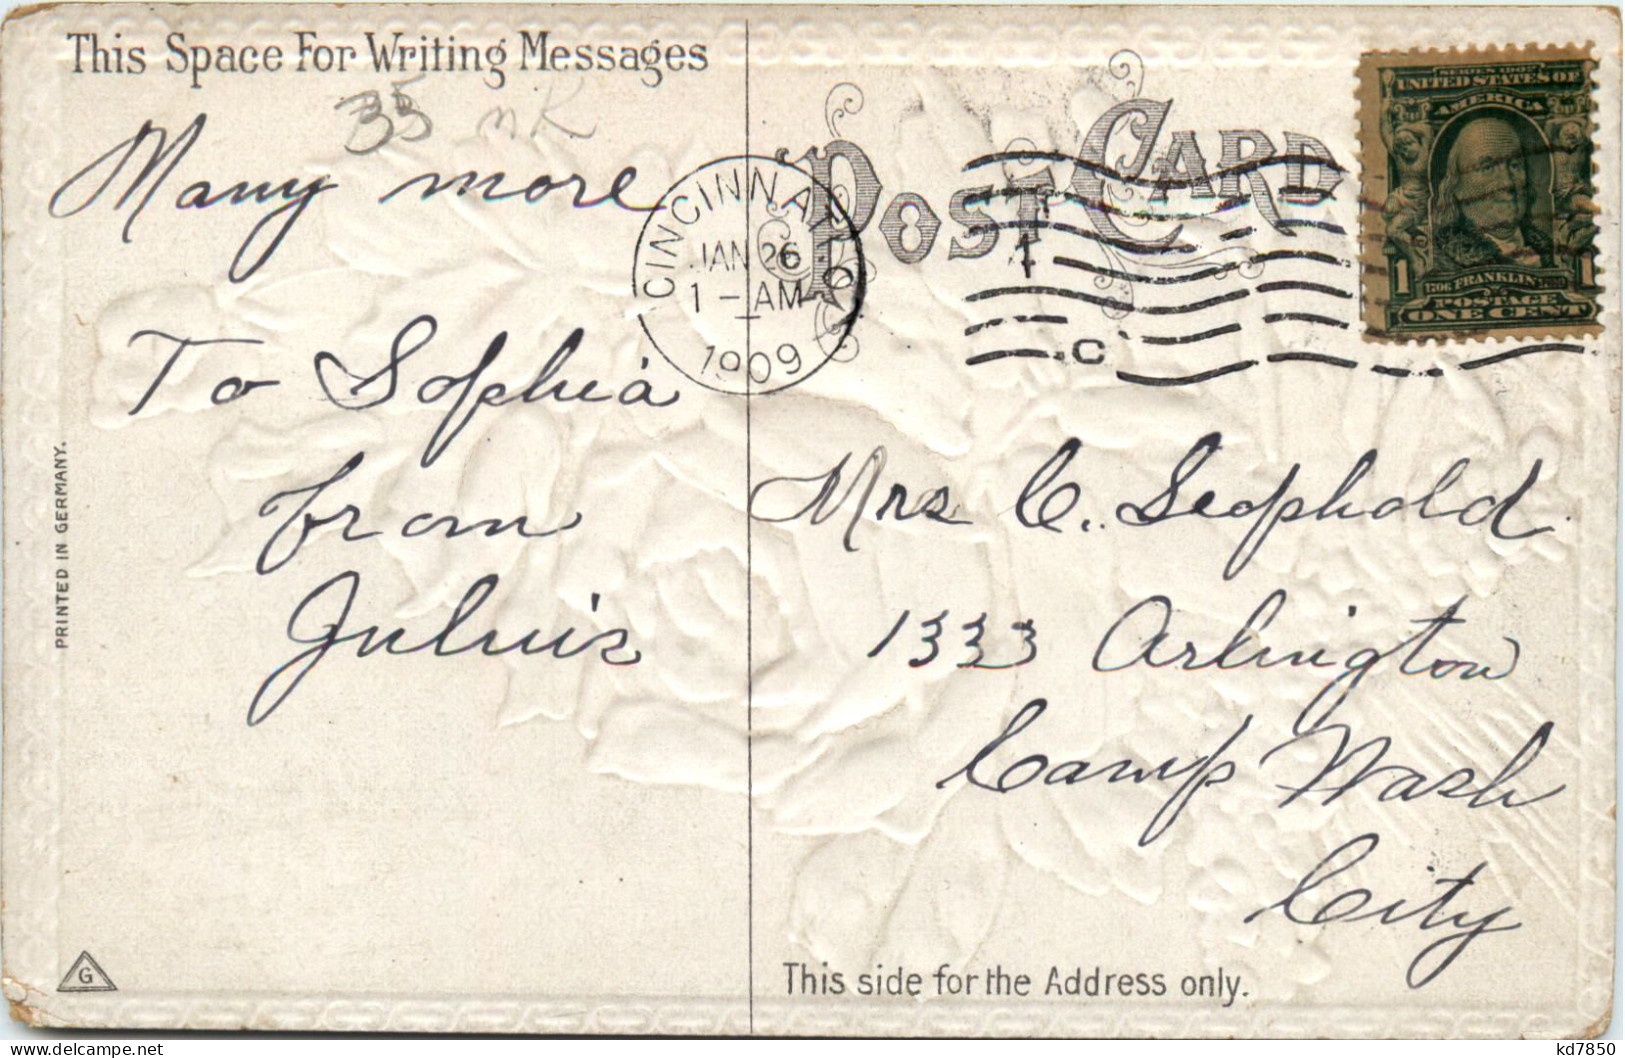 This Space For Writing Messages
35
Many more
To Sophia
from
Julius
PRINTED IN GERMANY.
G
POST CARD
CINCINNATI, O
JAN 26
1 - AM
1909
1
C
SERIES 1902
UNITED STATES OF
AMERICA
1 1706 FRANKLIN 1790 1
POSTAGE
ONE CENT
Mrs C. Seophold
1333 Arlington
Camp Wash
City
This side for the Address only.
delcampe.net
kd7850